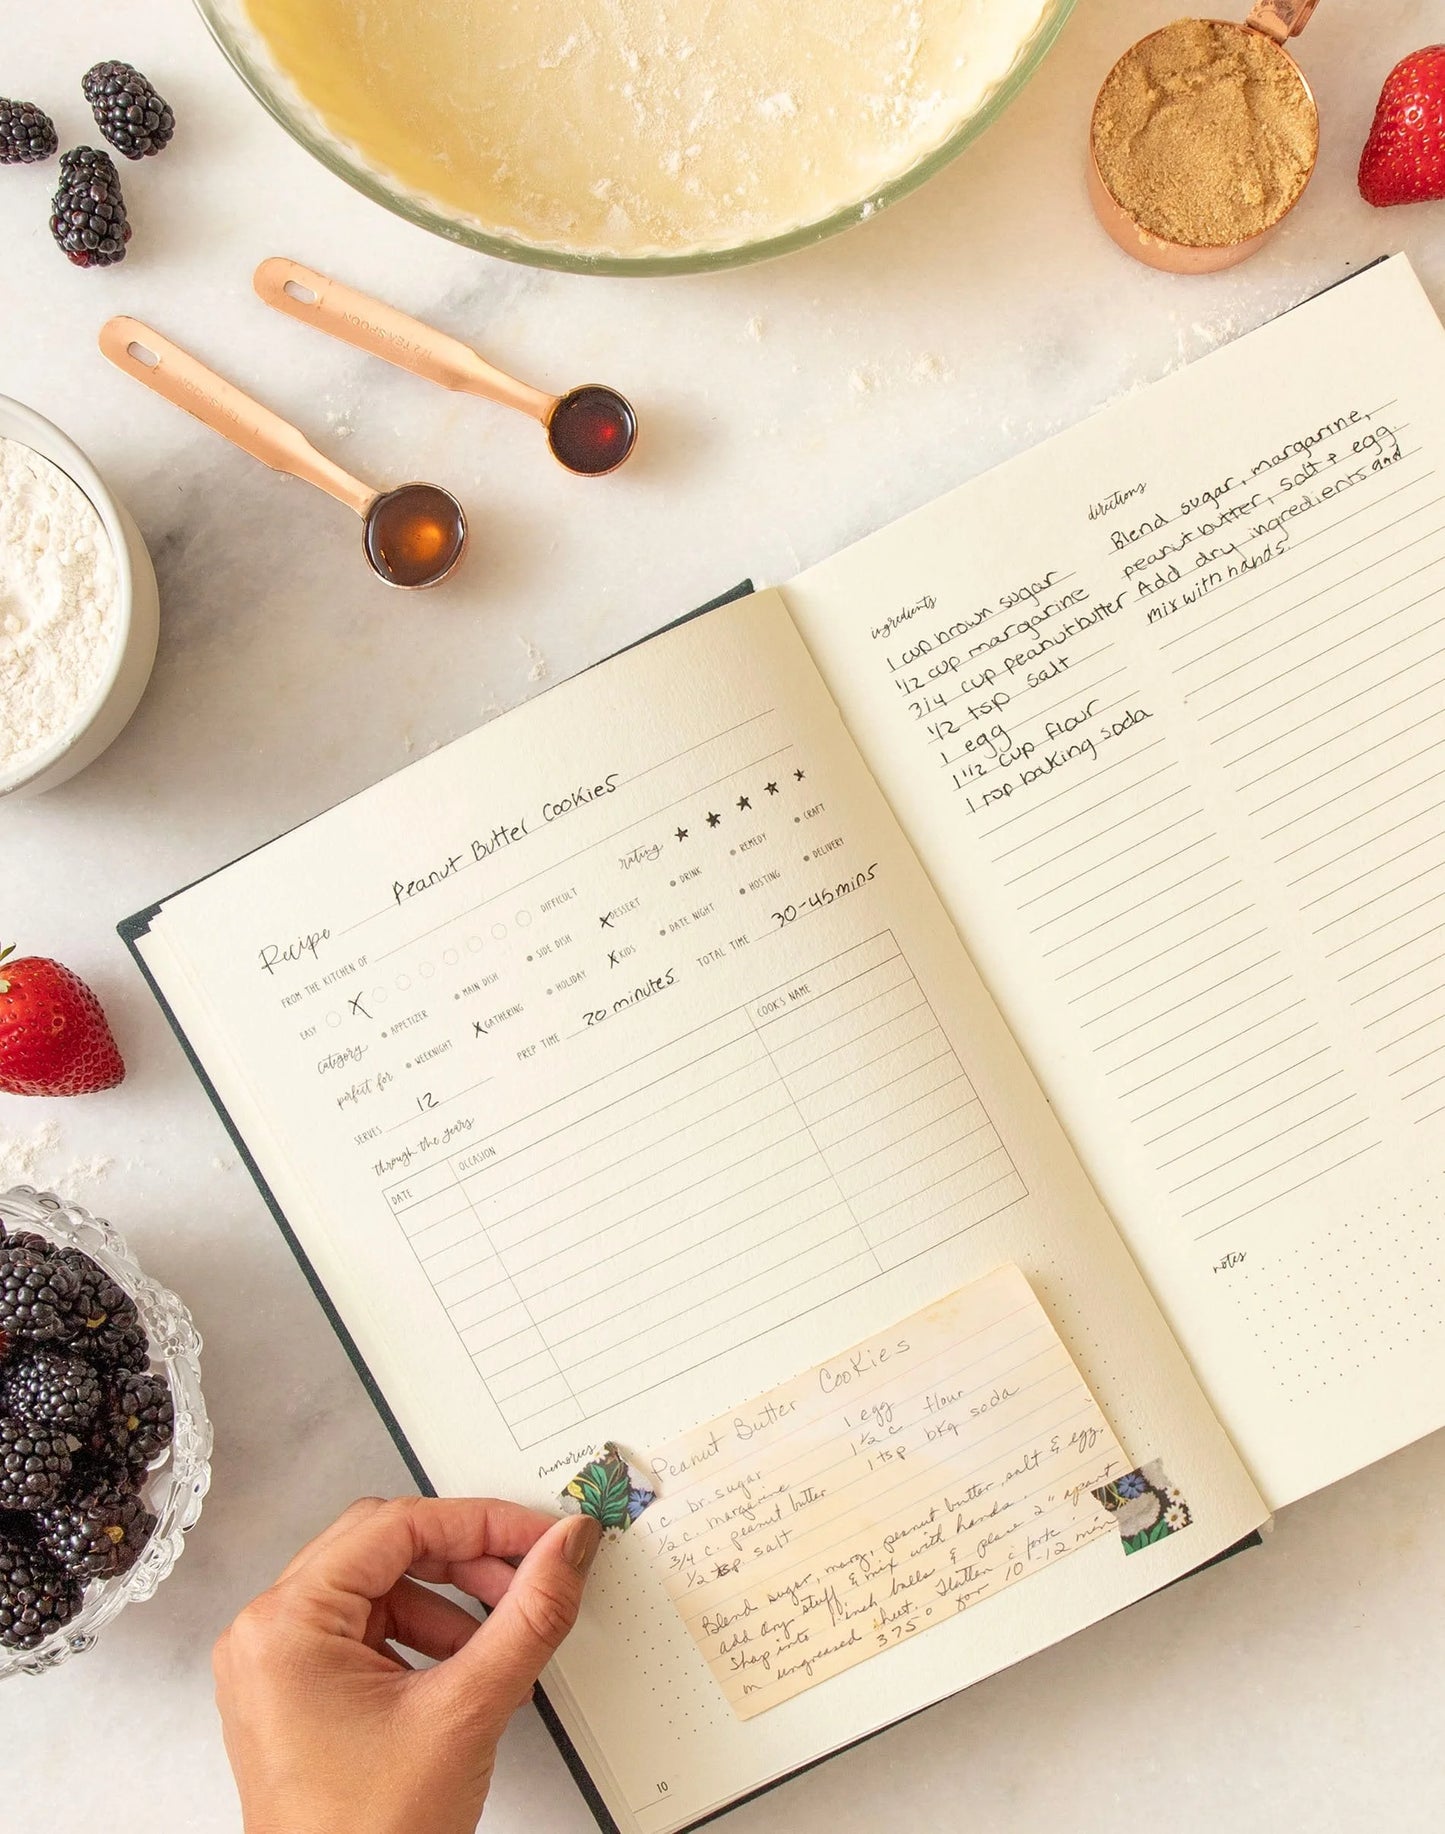 1/2 TEASPOON
1 TEASPOON
Recipe Peanut Butter Cookies
FROM THE KITCHEN OF
rating ★ ★ ★ ★ ★
EASY X DIFFICULT
category • APPETIZER • MAIN DISH • SIDE DISH X DESSERT • DRINK • REMEDY • CRAFT
perfect for • WEEKNIGHT X GATHERING • HOLIDAY X KIDS • DATE NIGHT • HOSTING • DELIVERY
SERVES 12 PREP TIME 20 minutes TOTAL TIME 30-45 mins
through the years
DATE OCCASION COOK'S NAME
memories
Peanut Butter Cookies
1 c. br. sugar 1 egg
1/2 c. margarine 1 1/2 c flour
3/4 c. peanut butter 1 tsp bkg soda
1/2 tsp. salt
Blend sugar, marg, peanut butter, salt & egg.
add dry stuff & mix with hands.
Shap into 1 inch balls & place 2" apart
on ungreased sheet. Flatten c fork
375° for 10-12 min
10
ingredients
1 cup brown sugar
1/2 cup margarine
3/4 cup peanut butter
1/2 tsp salt
1 egg
1 1/2 cup flour
1 tsp baking soda
directions
Blend sugar, margarine,
peanut butter, salt + egg.
Add dry ingredients and
mix with hands.
notes